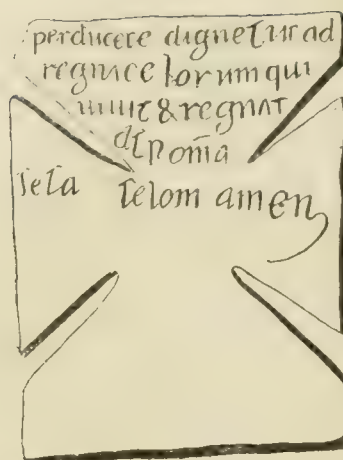 perducere dignetur ad
regnū celorum qui
uiuit & regnat
dš p omīa
secła sełom amen